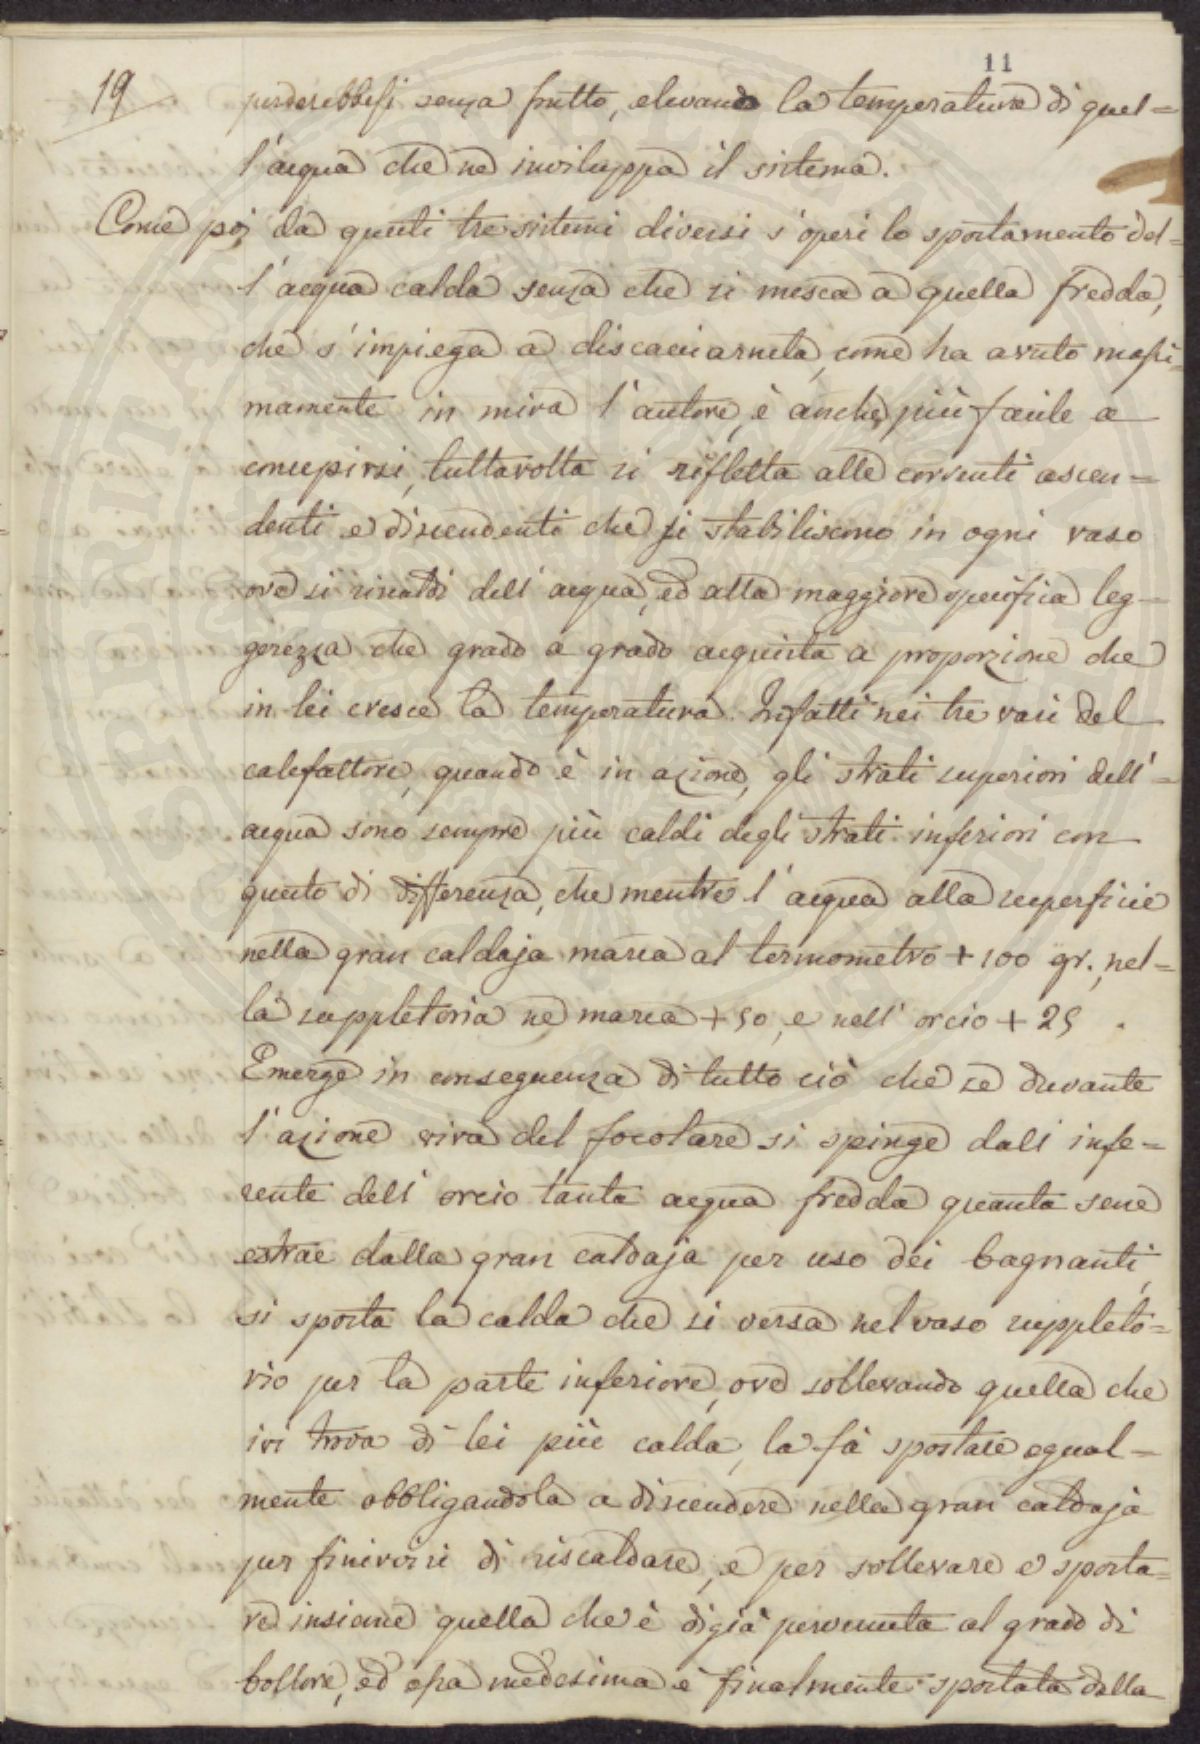 11
19
perderebbesi senza frutto, elevando la temperatura di quel=
l'acqua che ne inviluppa il sistema.
Come poi da questi tre sistemi diversi s'operi lo spostamento del=
l'acqua calda senza che si mesca a quella fredda,
che s'impiega a discacciarnela, come ha avuto massi=
mamente in mira l'autore, è anche più facile a
concepirsi, tuttavolta si rifletta alle correnti ascen=
denti e discendenti che si stabiliscono in ogni vaso
ove si riscaldi dell'acqua, ed alla maggiore specifica leg=
gerezza che grado a grado acquista a proporzione che
in lei cresce la temperatura. Infatti nei tre vasi del
calefattore, quando è in azione, gli strati superiori dell'=
acqua sono sempre più caldi degli strati inferiori con
questo di differenza, che mentre l'acqua alla superficie
nella gran caldaja marca al termometro + 100 gr., nel=
la suppletoria ne marca + 50, e nell'orcio + 25.
Emerge in conseguenza di tutto ciò che se durante
l'azione viva del focolare si spinge dall'infe=
rente dell'orcio tanta acqua fredda quanta sene
estrae dalla gran caldaja per uso dei bagnanti,
si sposta la calda che si versa nel vaso suppleto=
rio per la parte inferiore, ove sollevando quella che
ivi trova di lei più calda, la fà spostare egual=
mente obbligandola a discendere nella gran caldaja
per finirvisi di riscaldare, e per sollevare e sposta=
re insieme quella che è digià pervenuta al grado di
bollore, ed essa medesima è finalmente spostata dalla